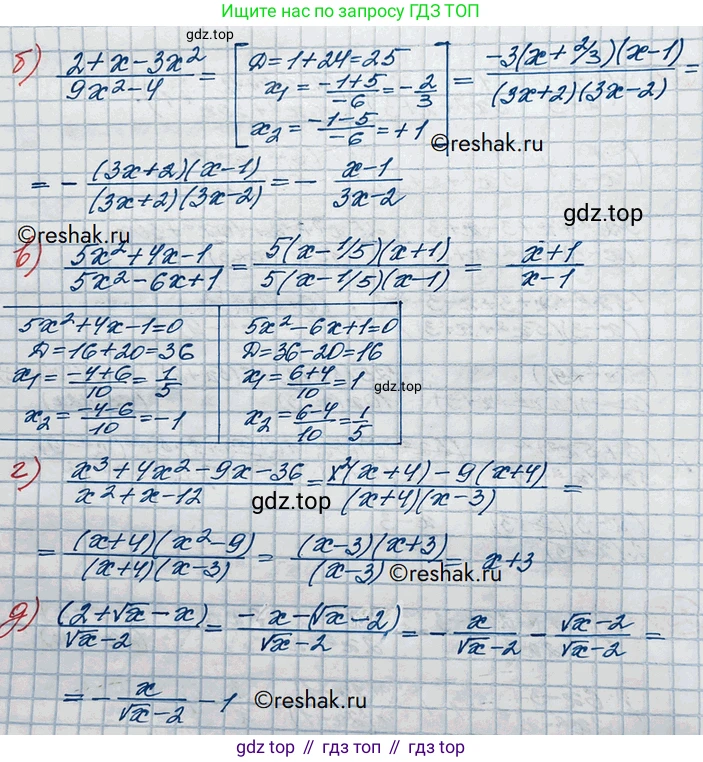 Ищите нас по запросу ГДЗ ТОП
gdz.top
б) (2+x-3x²)/(9x²-4) = [Д=1+24=25
x₁ = (-1+5)/(-6) = -2/3
x₂ = (-1-5)/(-6) = +1] = (-3(x+2/3)(x-1))/((3x+2)(3x-2)) =
©reshak.ru
= - ((3x+2)(x-1))/((3x+2)(3x-2)) = - (x-1)/(3x-2)
gdz.top
©reshak.ru
в) (5x²+4x-1)/(5x²-6x+1) = (5(x-1/5)(x+1))/(5(x-1/5)(x-1)) = (x+1)/(x-1)
5x²+4x-1=0
Д=16+20=36
x₁ = (-4+6)/10 = 1/5
x₂ = (-4-6)/10 = -1
5x²-6x+1=0
Д=36-20=16
x₁ = (6+4)/10 = 1
x₂ = (6-4)/10 = 1/5
gdz.top
г) (x³+4x²-9x-36)/(x²+x-12) = (x²(x+4)-9(x+4))/((x+4)(x-3)) =
gdz.top
= ((x+4)(x²-9))/((x+4)(x-3)) = ((x-3)(x+3))/(x-3) = x+3
©reshak.ru
д) (2+√x-x)/(√x-2) = (-x-(√x-2))/(√x-2) = - x/(√x-2) - (√x-2)/(√x-2) =
= - x/(√x-2) - 1
©reshak.ru
gdz top // гдз топ // gdz.top